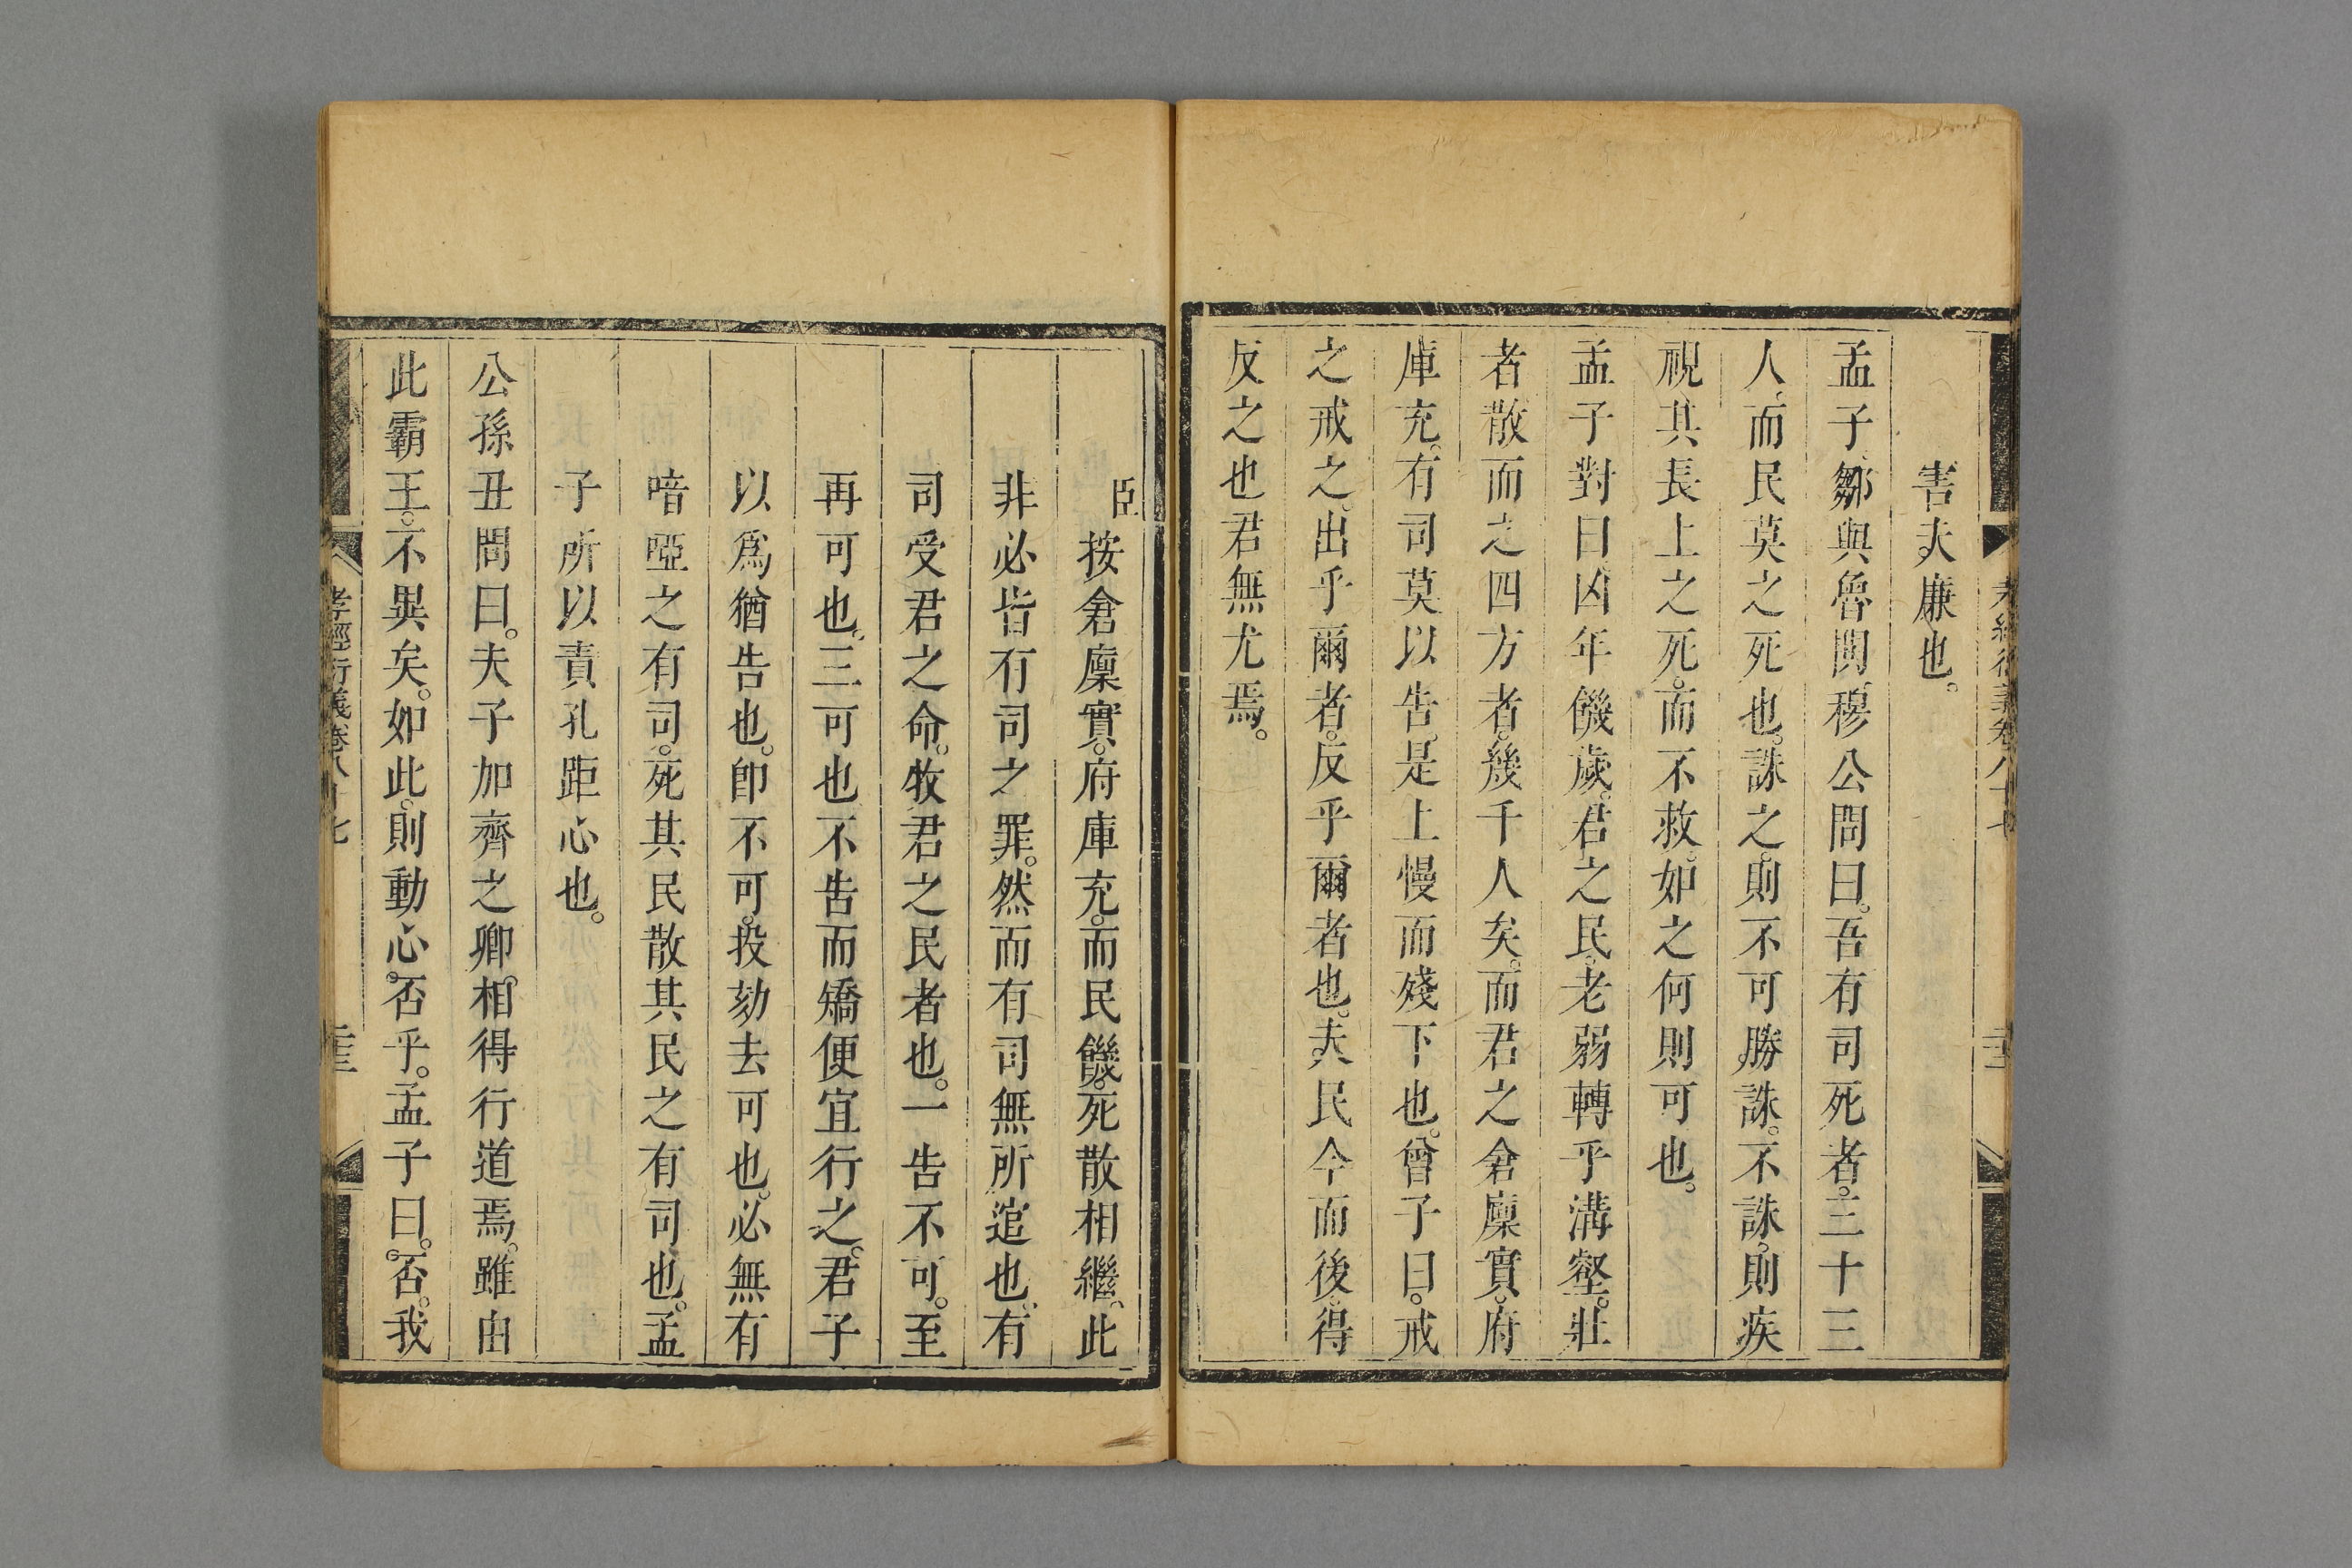 害夫廉也。
孟子鄒與魯鬨穆公問曰。吾有司死者。三十三
人而民莫之死也。誅之。則不可勝誅。不誅。則疾
視其長上之死。而不救。如之何則可也。
孟子對曰凶年饑歲。君之民。老弱轉乎溝壑。壯
者散而之四方者。幾千人矣。而君之倉廩實。府
庫充。有司莫以告。是上慢而殘下也。曾子曰。戒
之戒之。出乎爾者。反乎爾者也。夫民今而後。得
反之也君無尤焉。
臣按倉廩實。府庫充。而民饑。死散相繼。此
非必皆有司之罪。然而有司無所逭也。有
司受君之命。牧君之民者也。一告不可。至
再可也。三可也不告而矯便宜行之。君子
以爲猶告也。卽不可。投劾去可也。必無有
喑啞之有司。死其民散其民之有司也。孟
子所以責孔距心也。
公孫丑問曰。夫子加齊之卿。相得行道焉。雖由
此霸王。不異矣。如此。則動心。否乎。孟子曰。否。我
孝經衍義卷八十七